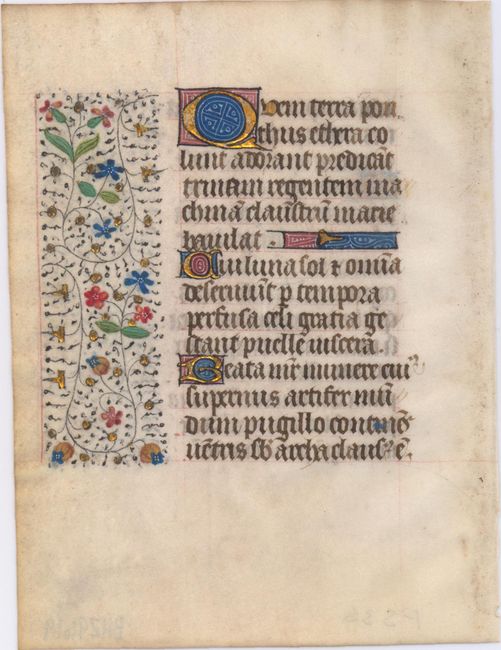 Quem terra pon
thus ethera co
lunt adorant predicãt
trinam regentem ma
chinã claustrũ marie
baiulat.
Cui luna sol ⁊ omĩa
deseruiũt p tempora
perfusa celi gratia ge
stant puelle viscera.
Beata mr̃ munere cui9
supernus artifex mũ
dum pugillo continẽs
uẽtris sb̃ archa claus9 ẽ.